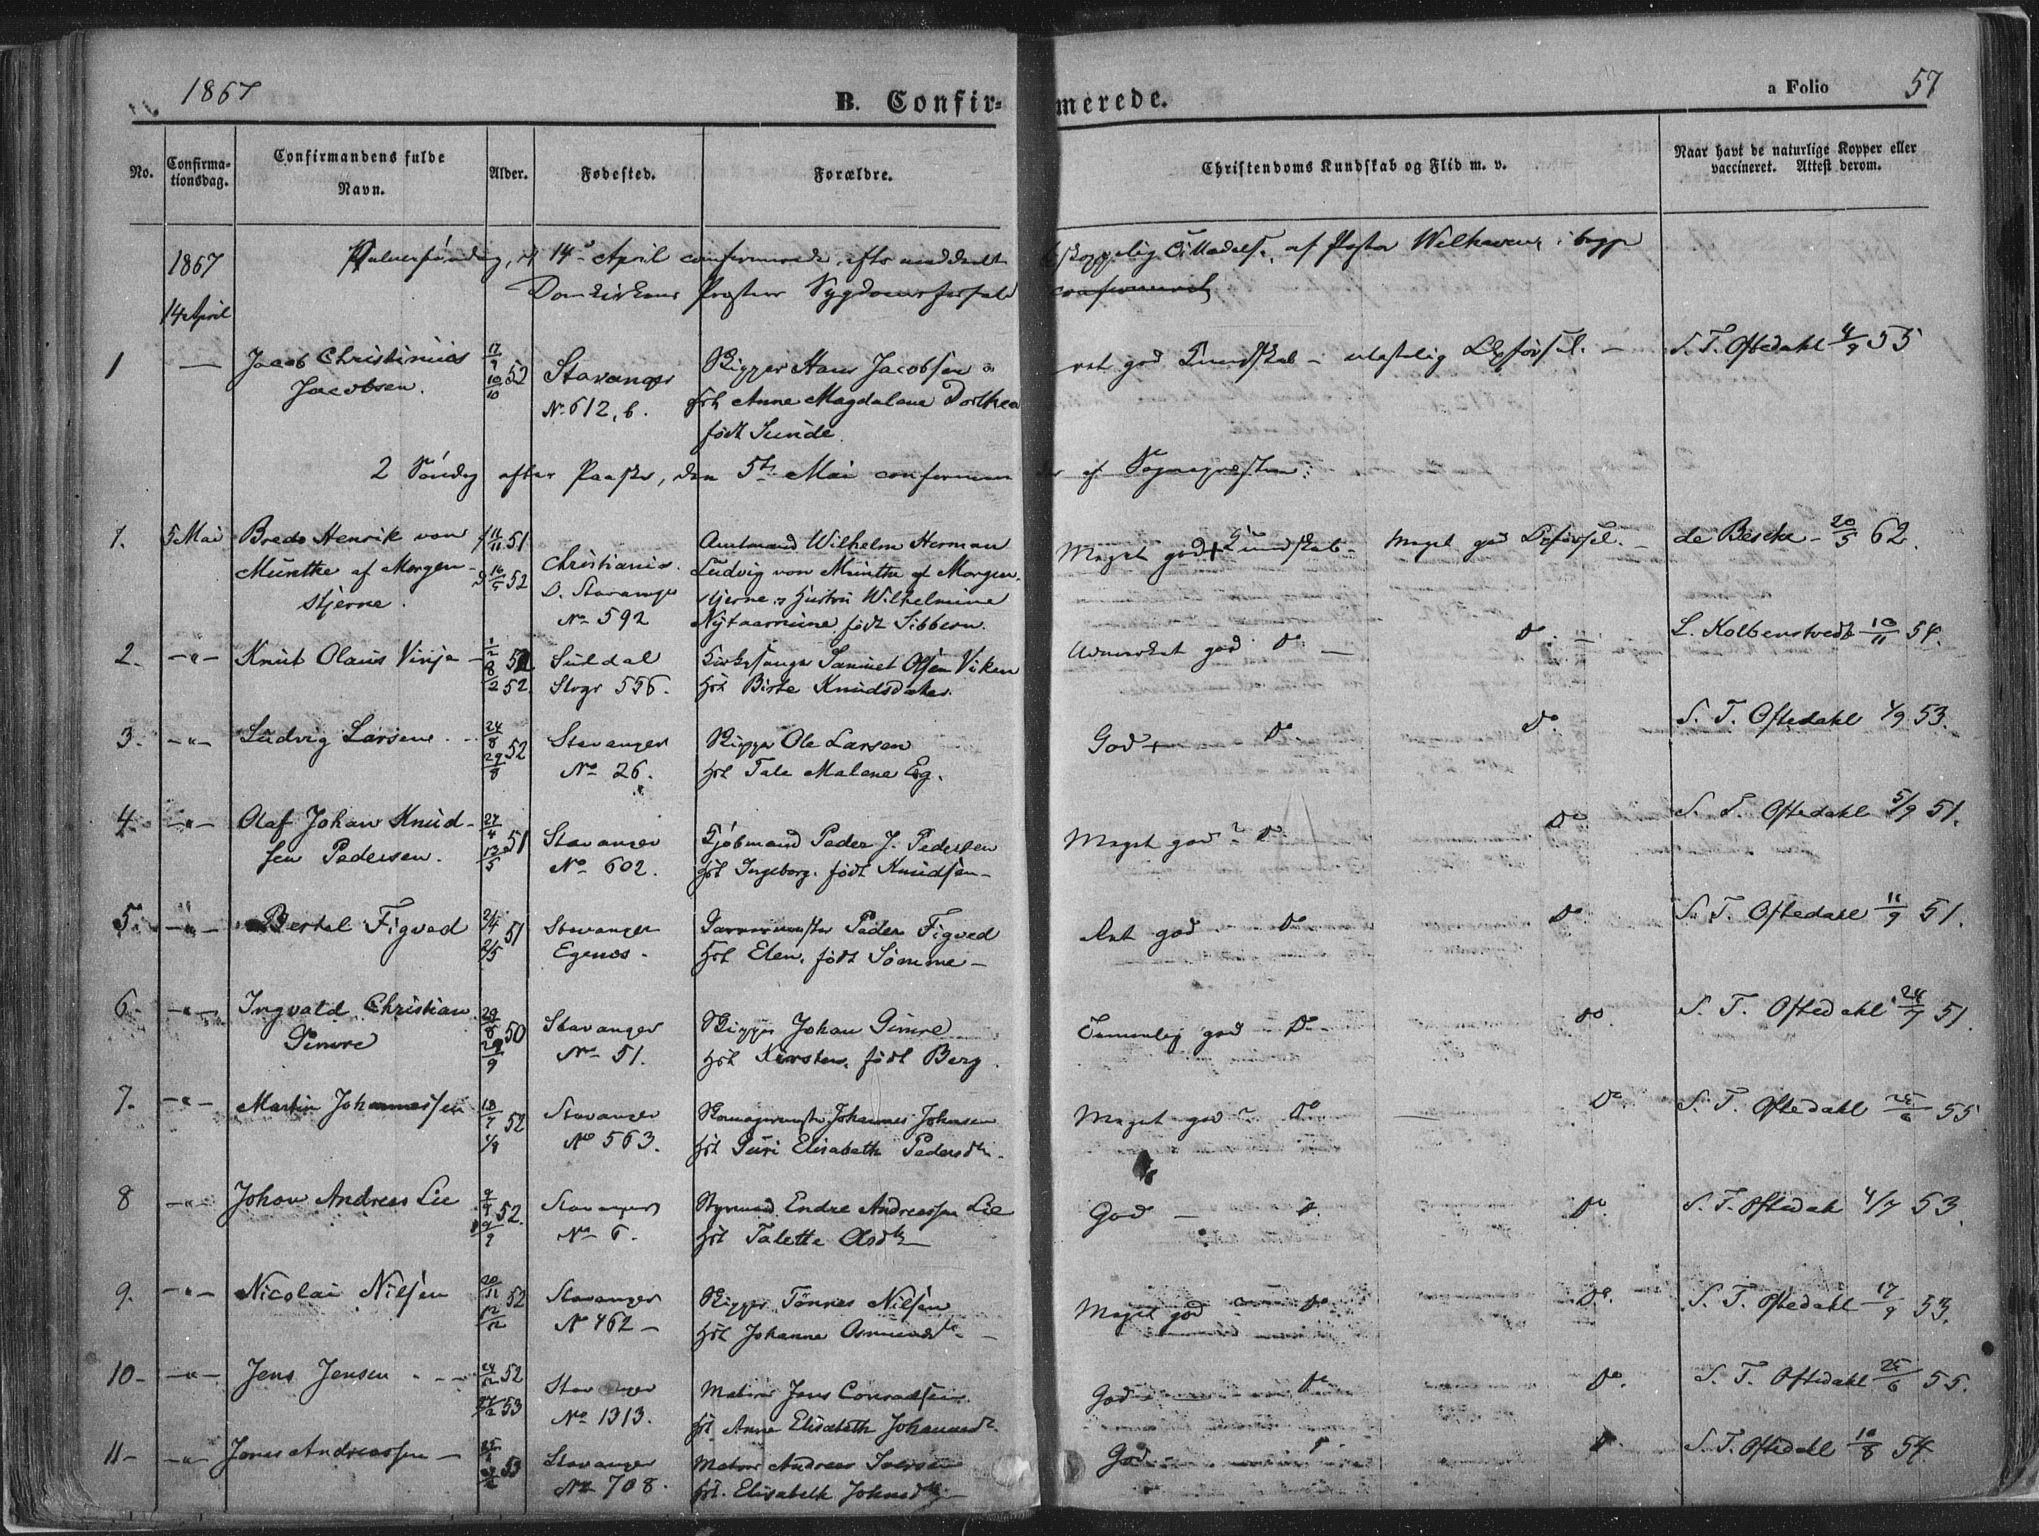 1867
B. Confir=merede.
a Folio 57
No.
Confirma-tionsdag.
Confirmandens fulde Navn.
Alder.
Fødested.
Forældre.
Christendoms Kundskab og Flid m. v.
Naar havt de naturlige Kopper eller vaccineret. Attest derom.
1867
14 April
14de April confirmerede, efter meddelt bispelig Tilladelse, af Pastor Welhaven i
Domkirkens Præsters Sygdomsforfald confirmeret
1 — Jacob Christinius Jacobsen. 17/9 10/10 52 Stavanger No 612, b. Skipper Hans Jacobsen og Hst. Anne Magdalene Dorthea født Sunde. ret god Kundskab – ulastelig Opførsel. – S. T. Oftedahl 4/9 55
2 Søndag efter Paaske, den 5te Mai confirmeret af Sognepræsten:
1. 5 Mai Bredo Henrik von Munthe af Morgenstjerne. 11/11 51 16/5 52 Christiania. D. Stavanger No 592 Amtmand Wilhelm Herman Ludvig von Munthe af Morgenstjerne og Hustru Wilhelmine Nytaarmine født Sibbern. Meget god + Kundskab – Meget god Opførsel. – de Besche – 20/5 62.
2. –"– Knut Olaus Vinje – 1/2 52 8/2 52. Suldal Stvgr 556. Kirkesanger Samuel Olsen Viken Hst. Birte Knudsdatter. Udmerket god Do – Do – L. Kolbenstvedt 10/11 54.
3. –"– Ludvig Larsen. 24/8 29/8 52 Stavanger No 26. Skipper Ole Larsen Hst. Tale Malene Eg. God + Do. Do. S. T. Oftedahl 1/9 53.
4. –"– Olaf Johan Knudsen Pedersen. 27/4 12/5 51 Stavanger No 602. Kjøbmand Peder J. Pedersen Hst. Ingeborg. født Knudsen – Meget god ? Do. Do S. T. Oftedahl 5/9 51.
5. –"– Bertel Figved 2/4 2/5 51 Stavanger Egenæs. Garvermester Peder Figved Hst. Elen, født Sømme – Ret god – Do Do S. T. Oftedahl 11/9 51.
6. –"– Ingvald Christian Gimre 29/8 29/9 50 Stavanger No 51. Skipper Johan Gimre Hst. Kirsten, født Berg. Temmelig god – Do – Do. S. T. Oftedahl 24/7 51.
7. –"– Martin Johannessen 18/7 1/8 52 Stavanger No 563. Johannes Johnsen Hst. Guri Elisabeth Pedersdtr. Meget god ? Do – Do. S. T. Oftedahl 25/6 55
8 –"– Johan Andreas Lie 9/9 52. Stavanger No 6. Styrmand Endre Andreassen Lie Hst. Talette Olsdtr God – Do. Do. S. T. Oftedahl 4/7 53.
9. –"– Nicolai Nilsen 20/11 12/12 52 Stavanger No 462 – Skipper Tønnes Nilsen Hst. Johanne Osmundsdtr – Meget god Do Do. S. T. Oftedahl 17/9 53.
10 – –"– Jens Jensen – 24/12 52 27/2 53 Stavanger No 1313. Matros Jens Conradsen Hst. Anne Elisabeth Johannesdtr. God – Do Do. S. T. Oftedahl 25/6 55.
11 – –"– Jonas Andreassen – 53 Stavanger No 708. Matros Andreas Iversen Hst. Elisabeth Johnsdtr God – Do S. T. Oftedahl 10/8 54.